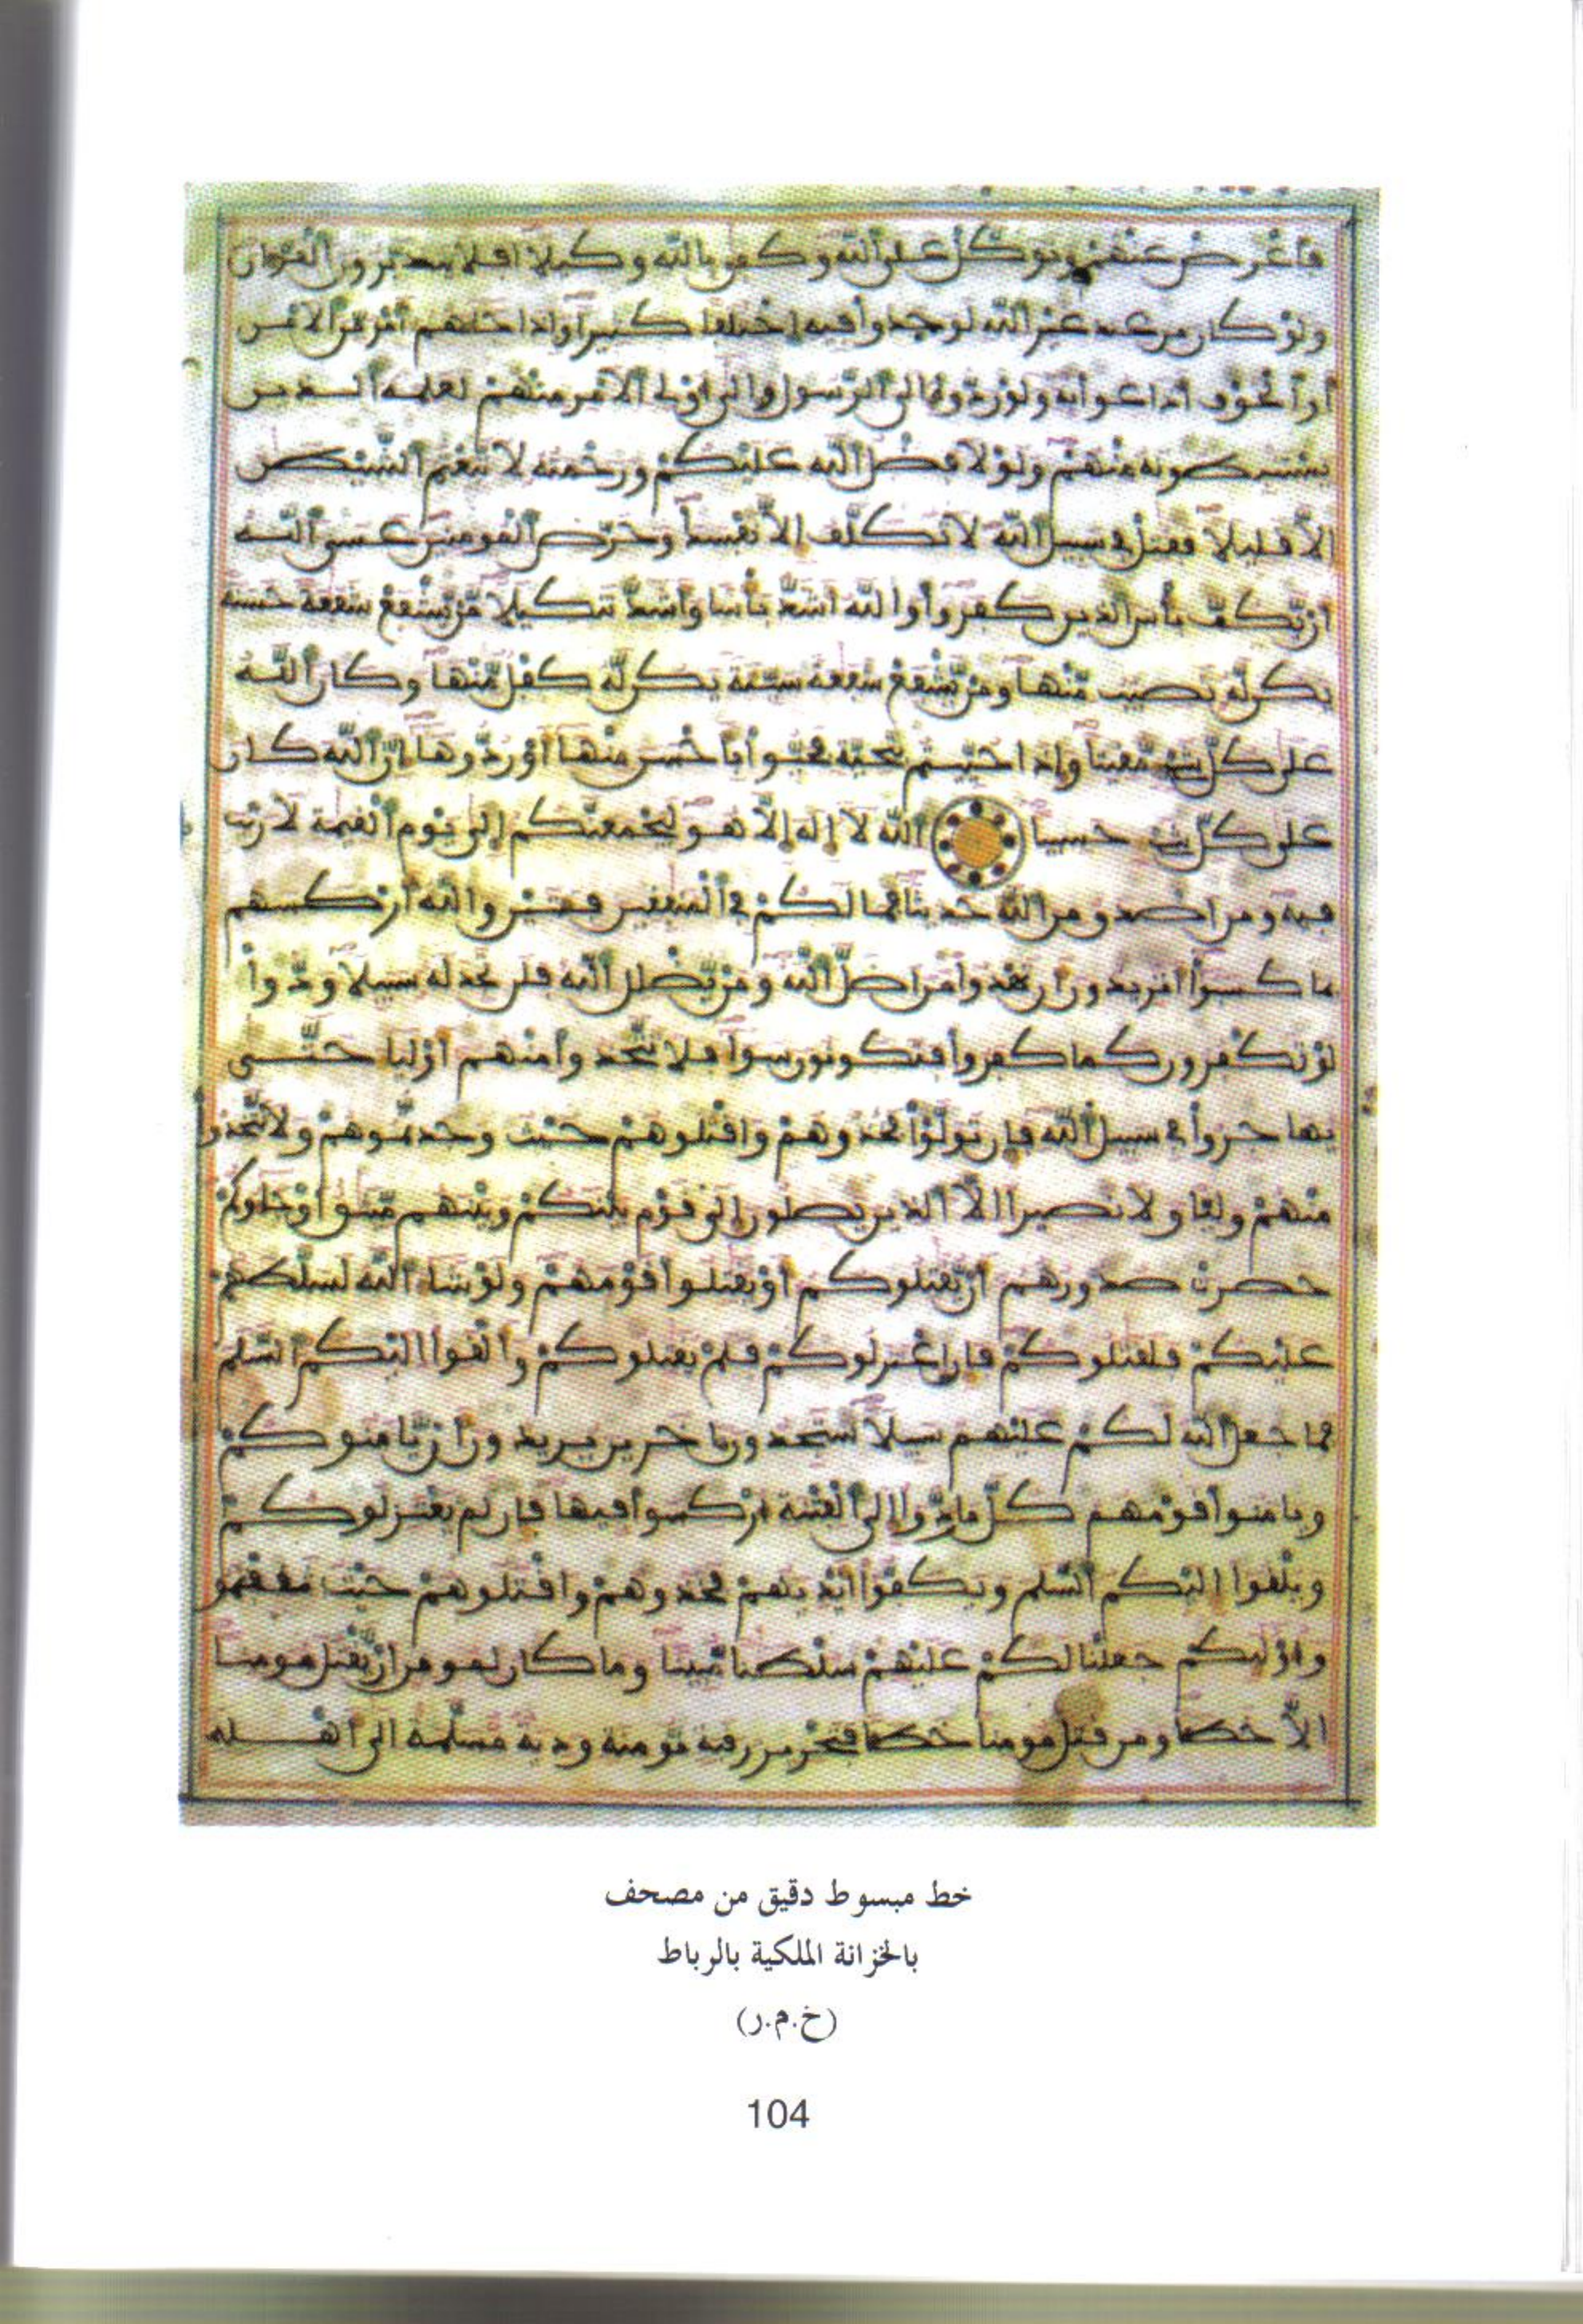 فأعرض عنهم وتوكل على الله وكفى بالله وكيلا افلا يتدبرون القرءان
ولو كان من عند غير الله لوجدوا فيه اختلفا كثيرا واذا جاءهم أمر من الامن
أو الخوف اذاعوا به ولو ردوه إلى الرسول وإلى أولى الامر منهم لعلمه الـذين
يستنبطونه منهم ولولا فضل الله عليكم ورحمته لاتبعتم الشيطن
إلا قليلا فقتل في سبيل الله لا تكلف إلا نفسك وحرض المومنين عسى اللـه
ان يكف بأس الذين كفروا والله اشد بأسا وأشد تنكيلا من يشفع شفعة حسنة
يكن له نصيب منها ومن يشفع شفعة سيئة يكن له كفل منها وكان اللـه
على كل شيء مقيتا وإذا حييتم بتحية فحيوا بأحسن منها أو ردوها إن الله كان
على كل شيء حسيبا الله لا إله إلا هو ليجمعنكم إلى يوم القيمة لا ريب
فيه ومن اصدق من الله حديثا فما لكم في المنفقين فئتين والله أركسهم
بما كسبوا أتريدون أن تهدوا من اضل الله ومن يضلل الله فلن تجد له سبيلا ودوا
لو تكفرون كما كفروا فتكونون سواء فلا تتخذوا منهم أولياء حتـى
يهاجروا في سبيل الله فإن تولوا فخذوهم واقتلوهم حيث وجدتموهم ولا تتخذوا
منهم وليا ولا نصيرا إلا الذين يصلون إلى قوم بينكم وبينهم ميثق أو جاءوكم
حصرت صدورهم أن يقتلوكم أو يقتلوا قومهم ولو شاء الله لسلطهم
عليكم فلقتلوكم فإن اعتزلوكم فلم يقتلوكم وألقوا إليكم السلم
فما جعل الله لكم عليهم سبيلا ستجدون ءاخرين يريدون أن يامنوكم
ويامنوا قومهم كل ما ردوا إلى الفتنة أركسوا فيها فإن لم يعتزلوكم
ويلقوا إليكم السلم ويكفوا أيديهم فخذوهم واقتلوهم حيث ثقفتموهم
وأولئكم جعلنا لكم عليهم سلطنا مبينا وما كان لمومن ان يقتل مومنـا
إلا خطئا ومن قتل مومنا خطئا فتحرير رقبة مومنة ودية مسلمة إلى أهـلـه
خط مبسوط دقيق من مصحف
بالخزانة الملكية بالرباط
(خ.م.ر)
104